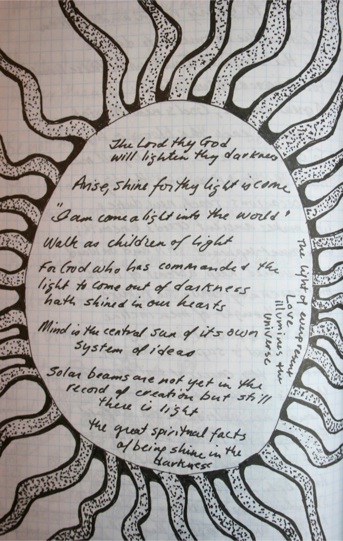 The Lord thy God
will lighten thy darkness
Arise, shine for thy light is come
"I am come a light into the world"
Walk as children of light
For God who has commanded the
light to come out of darkness
hath shined in our hearts
Mind is the central sun of its own
system of ideas
Solar beams are not yet in the
record of creation but still
there is light
the great spiritual facts
of being shine in the
darkness
The light of
Love
illumines the
Universe